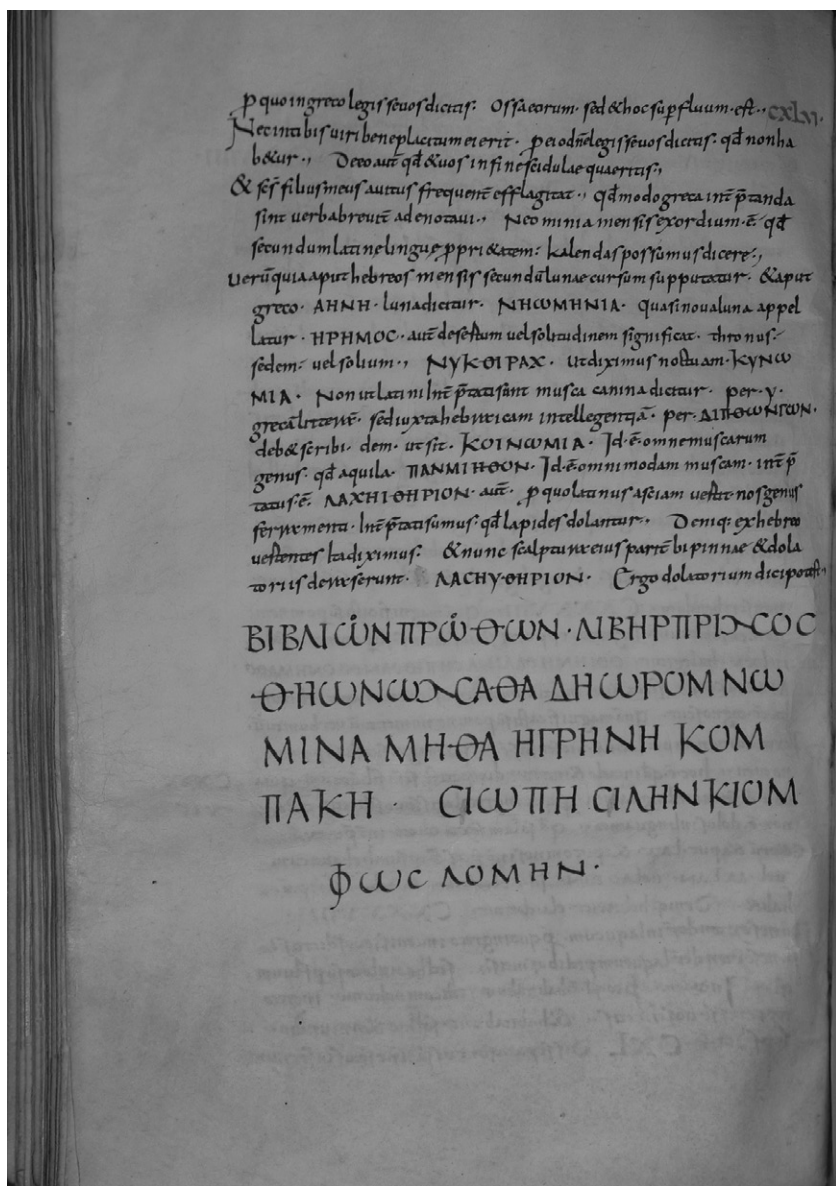 ꝑ quo in greco legisse vos dicitis: Ossa eorum. sed & hoc suꝑfluum. est.. CXLVI.
Nec in tibis viri beneplacitum ei erit. ꝑ eo dn̄e legisse vos dicitis. qđ non ha
b&ur., De eo aut̄ qđ & vos in fine scidulae quaeritis.,
& sc̄s filius meus avitus frequent̄ efflagitat., qđ modo greca int̄ p̄tanda
sint verba breviт̄ adenotavi., Neominia mensis exordium. ē. qđ
secundum latine lingue ꝓpri&atem: kalendas possumus dicere.,
Verū quia aput hebreos mensis secundū lunae cursum supputatur. & aput
greco. ΑΗΝΗ. luna dicitur. ΝΗѠΜΗΝΙΑ. quasi nova luna appel
latur. ΗΡΗΜΟC. aut̄ desertum vel solitudinem significat. thronus.
sedem: vel solium., ΝΥΚΘΙΡΑΧ. ut diximus noctuam. ΚΥΝѠ
ΜΙΑ. Non ut latini Int̄ p̄tati sunt musca canina dicitur. per. y.
grecā litterā. sed iuxta hebraicam intellegentiā. per. ΔΙΠΘѠΝΓѠΝ.
deb& scribi. dem. ut sit. ΚΟΙΝѠΜΙΑ. Id. ē. omne muscarum
genus. qđ aquila. ΠΑΝΜΙΗΘΟΝ. Id. ē. omnimodam muscam. int̄ p̄
tatus. ē. ΛΑΧΗΙΘΗΡΙΟΝ. aut̄. ꝑ quo latinus asciam vertit nos genus
ferramenti. Int̄ p̄tati sumus. qđ lapides dolantur., Deniq: ex hebreo
vertentes Ita diximus: & nunc scalpturas eius part̄ bipinnae & dola
toriis deraserunt. ΛΑCΗΥΘΗΡΙΟΝ. Ergo dolatorium dici potest.,
ΒΙΒΛΙѠΝ ΠΡѠΘѠΝ. ΛΙΒΗΡ ΠΡΙΣCΟC
ΘΗѠΝѠΣCΑΘΑ ΔΗѠΡΟΜ ΝѠ
ΜΙΝΑ ΜΗΘΑ ΗΓΡΗΝΗ ΚΟΜ
ΠΑΚΗ. CΙѠΠΗ CΙΛΗΝΚΙΟΜ
ΦѠC ΛΟΜΗΝ.